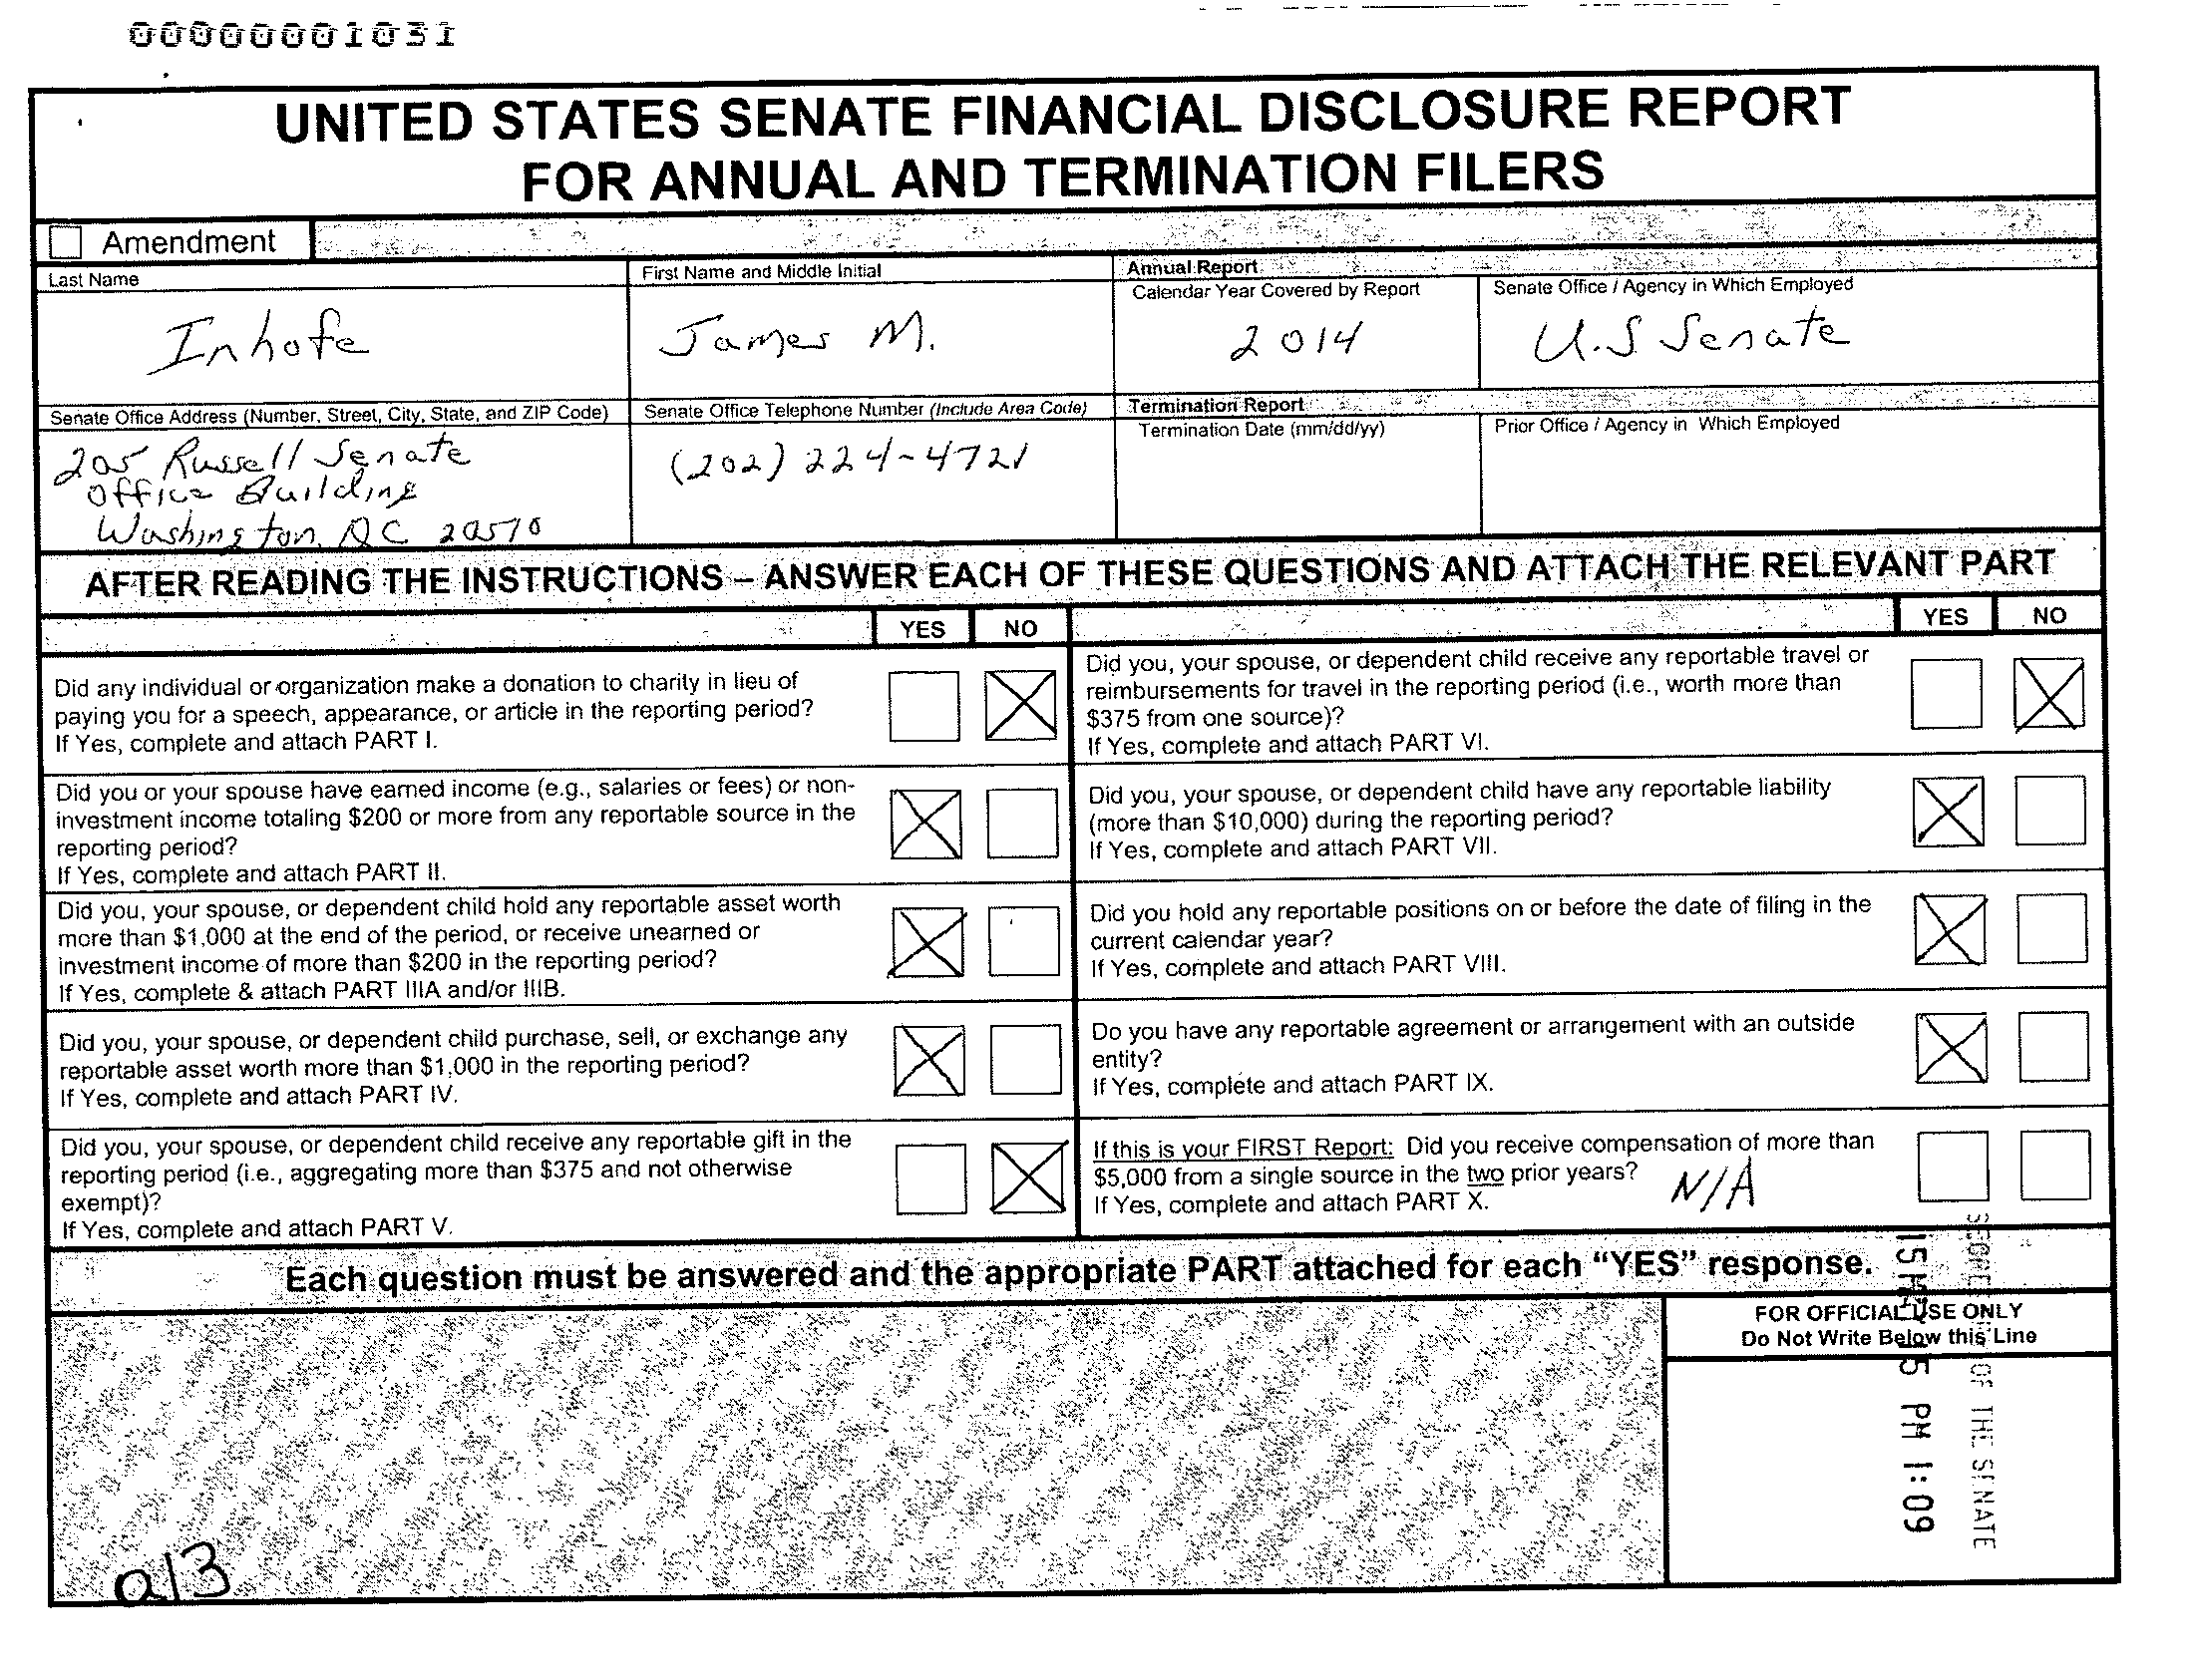 00000001031
UNITED STATES SENATE FINANCIAL DISCLOSURE REPORT
FOR ANNUAL AND TERMINATION FILERS
Amendment
Last Name
Inhofe
First Name and Middle Initial
James M.
Annual Report
Calendar Year Covered by Report
2014
Senate Office / Agency in Which Employed
U.S Senate
Senate Office Address (Number, Street, City, State, and ZIP Code)
205 Russell Senate
Office Building
Washington, DC 20510
Senate Office Telephone Number (Include Area Code)
(202) 224-4721
Termination Report
Termination Date (mm/dd/yy)
Prior Office / Agency in Which Employed
AFTER READING THE INSTRUCTIONS – ANSWER EACH OF THESE QUESTIONS AND ATTACH THE RELEVANT PART
YES NO
Did any individual or organization make a donation to charity in lieu of
paying you for a speech, appearance, or article in the reporting period?
If Yes, complete and attach PART I.
Did you or your spouse have earned income (e.g., salaries or fees) or non-
investment income totaling $200 or more from any reportable source in the
reporting period?
If Yes, complete and attach PART II.
Did you, your spouse, or dependent child hold any reportable asset worth
more than $1,000 at the end of the period, or receive unearned or
investment income of more than $200 in the reporting period?
If Yes, complete & attach PART IIIA and/or IIIB.
Did you, your spouse, or dependent child purchase, sell, or exchange any
reportable asset worth more than $1,000 in the reporting period?
If Yes, complete and attach PART IV.
Did you, your spouse, or dependent child receive any reportable gift in the
reporting period (i.e., aggregating more than $375 and not otherwise
exempt)?
If Yes, complete and attach PART V.
YES NO
Did you, your spouse, or dependent child receive any reportable travel or
reimbursements for travel in the reporting period (i.e., worth more than
$375 from one source)?
If Yes, complete and attach PART VI.
Did you, your spouse, or dependent child have any reportable liability
(more than $10,000) during the reporting period?
If Yes, complete and attach PART VII.
Did you hold any reportable positions on or before the date of filing in the
current calendar year?
If Yes, complete and attach PART VIII.
Do you have any reportable agreement or arrangement with an outside
entity?
If Yes, complete and attach PART IX.
If this is your FIRST Report: Did you receive compensation of more than
$5,000 from a single source in the two prior years?
If Yes, complete and attach PART X.
N/A
Each question must be answered and the appropriate PART attached for each “YES” response.
FOR OFFICIAL USE ONLY
Do Not Write Below this Line
OF THE SENATE
PM 1:09